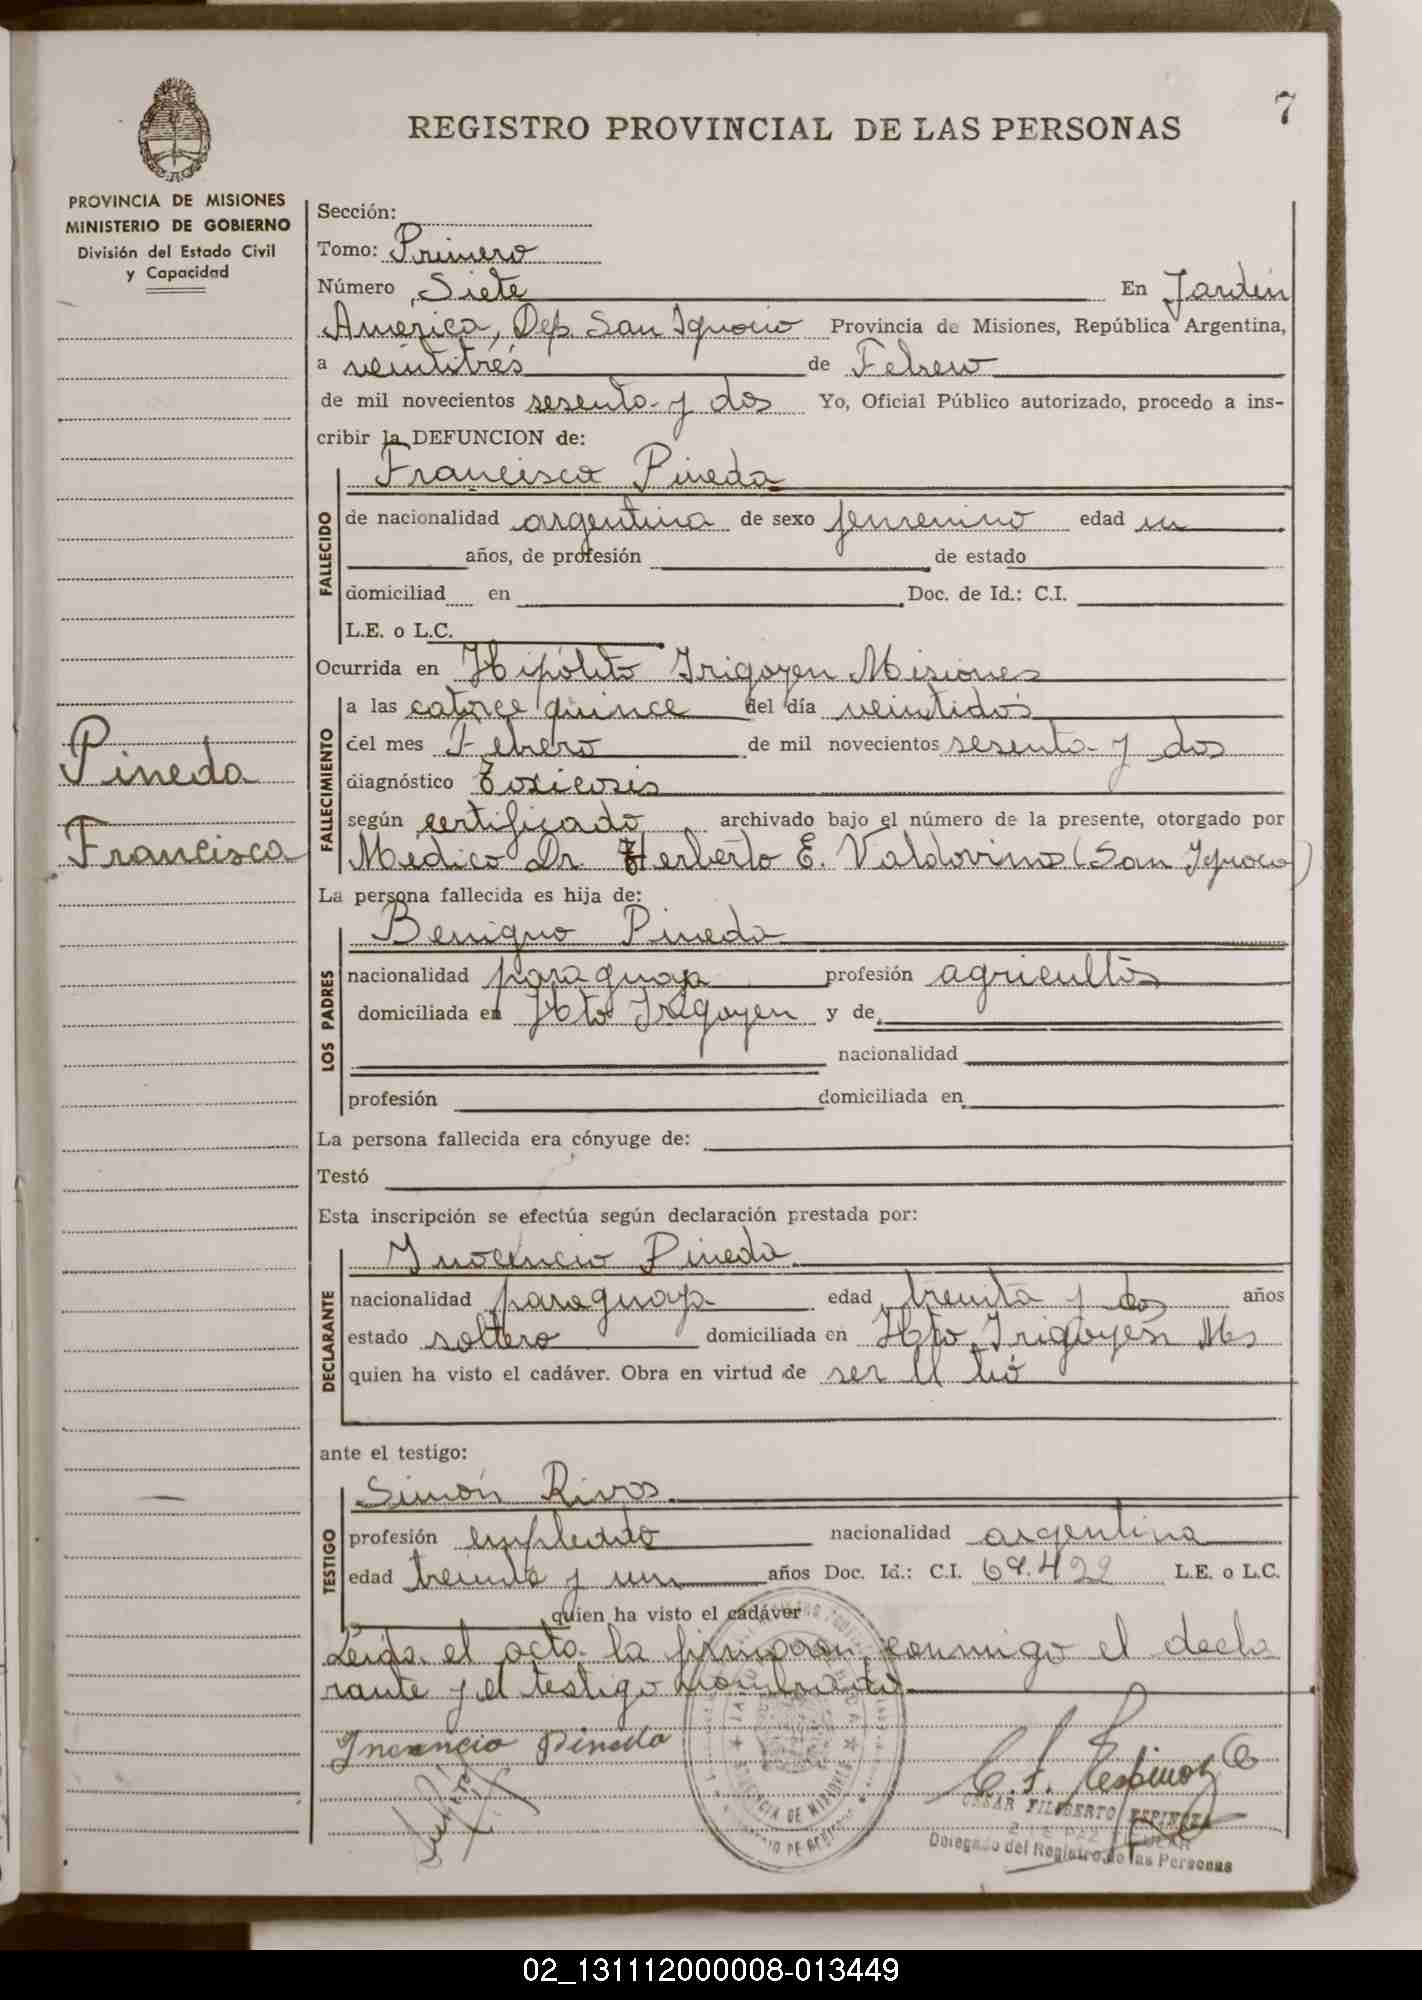 7
REGISTRO PROVINCIAL DE LAS PERSONAS
PROVINCIA DE MISIONES
MINISTERIO DE GOBIERNO
División del Estado Civil
y Capacidad
Pineda
Francisca
Sección:
Tomo: Primero
Número Siete En Jardin
América, Dep. San Ignacio Provincia de Misiones, República Argentina,
a veintitrés de Febrero
de mil novecientos sesenta y dos Yo, Oficial Público autorizado, procedo a ins-
cribir la DEFUNCION de:
Francisca Pineda
FALLECIDO
de nacionalidad argentina de sexo femenino edad un
años, de profesión de estado
domiciliad en Doc. de Id.: C.I.
L.E. o L.C.
Ocurrida en Hipólito Irigoyen Misiones
FALLECIMIENTO
a las catorce quince del día veintidos
del mes Febrero de mil novecientos sesenta y dos
diagnóstico Toxicosis
según certificado archivado bajo el número de la presente, otorgado por
Medico Dr. Herberto E. Valdovinos (San Ignacio)
La persona fallecida es hija de:
Benigno Pineda
LOS PADRES
nacionalidad paraguaya profesión agricultor
domiciliada en Hto Irigoyen y de
nacionalidad
profesión domiciliada en
La persona fallecida era cónyuge de:
Testó
Esta inscripción se efectúa según declaración prestada por:
Inocencio Pineda
DECLARANTE
nacionalidad paraguaya edad treinta y dos años
estado soltero domiciliada en Hto Irigoyen Ms
quien ha visto el cadáver. Obra en virtud de ser el tió
ante el testigo:
Simón Rivas
TESTIGO
profesión empleado nacionalidad argentina
edad treinta y un años Doc. Id.: C.I. 69.422 L.E. o L.C.
quien ha visto el cadáver
Leida el acta la firmaron conmigo el decla
rante y el testigo nombrado.
Inocencio Pineda
C. F. Espinoza
CESAR FILIBERTO ESPINOZA
Delegado del Registro de las Personas
02_131112000008-013449